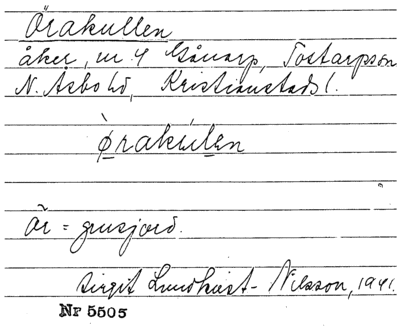 Örakullen
åker, nr 4 Gånarp, Tostarpssn
N. Asbo hd, Kristianstads l.
ø̀rakúlen
Ör = grusjord.
Birgit Lundkvist-Nilsson, 1941.
Nr 5505